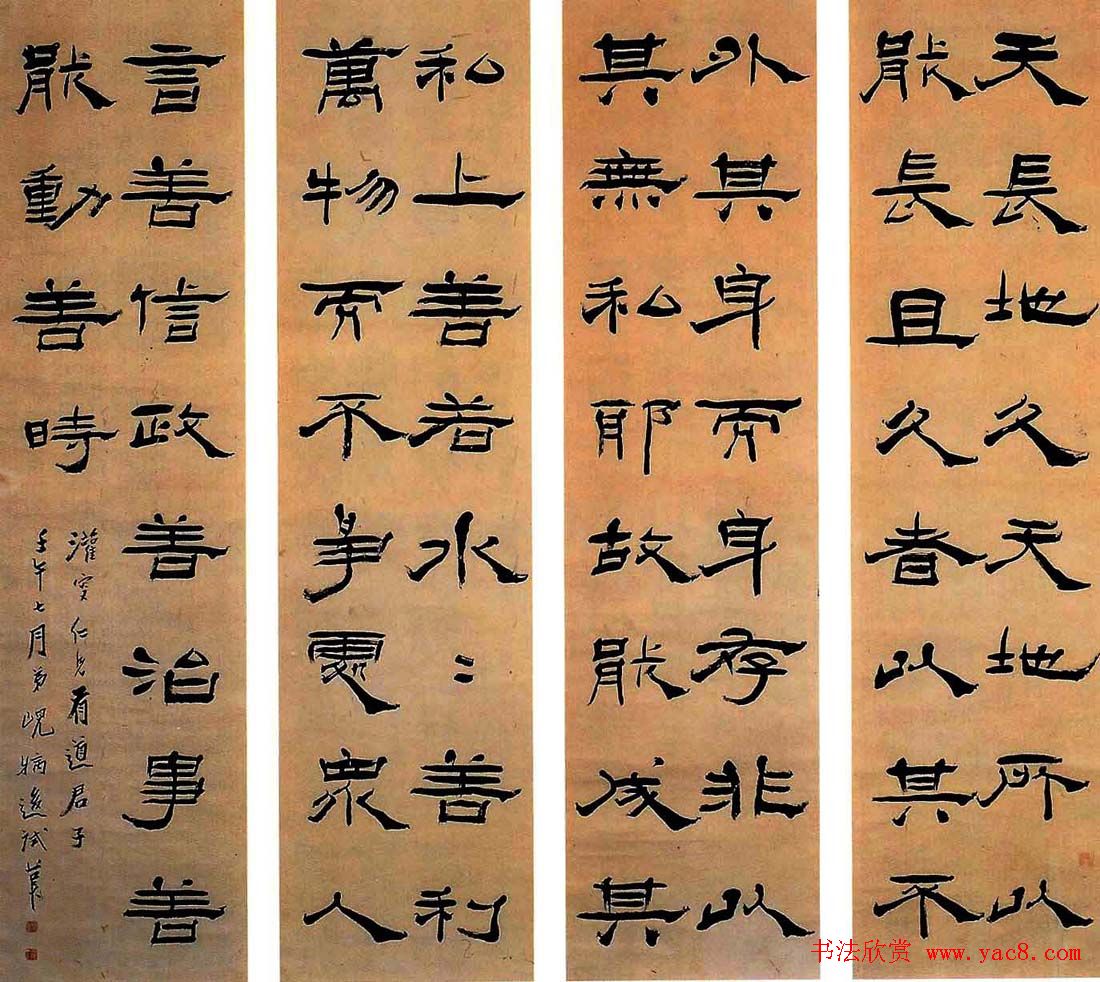 天長地久天地所以
能長且久者以其不
外其身而身存非以
其無私耶故能成其
私上善若水〻善利
萬物而不爭處衆人
言善信政善治事善
能動善時
灌仁兄有道君子
壬午七月弟峴病試筆
书法欣赏 www.yac8.com